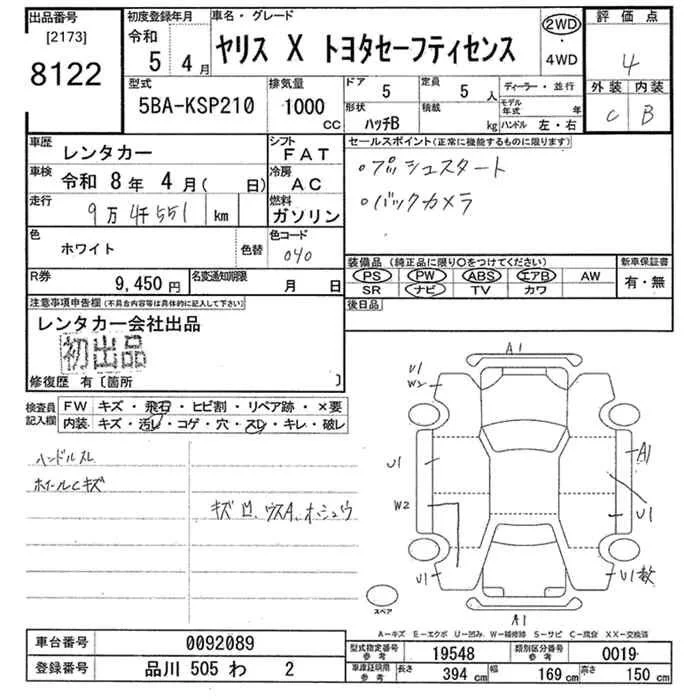 出品番号
[2173]
8122
初度登録年月
令和
5 4月
車名・グレード
ヤリス X トヨタセーフティセンス
2WD
・
4WD
評価点
4
外装 内装
C B
型式
5BA-KSP210
排気量
1000
cc
ドア 5
定員 5人
形状
ハッチB
積載
kg
ディーラー・並行
モデル年式 年
ハンドル 左・右
車歴
レンタカー
シフト
FAT
車検
令和 8年 4月( 日)
冷房
AC
走行
9万4千551 km
燃料
ガソリン
色
ホワイト
色替
色コード
040
R券
9,450円
名変通知期限
月 日
セールスポイント(正常に機能するものに限ります)
○プッシュスタート
○バックカメラ
装備品(純正品に限り○をつけてください)
新車保証書
PS PW ABS エアB AW
SR ナビ TV カワ
有・無
後日品
注意事項申告欄(不具合内容等は具体的に記入して下さい)
レンタカー会社出品
初出品
修復歴 有〔箇所 〕
検査員記入欄
FW キズ・飛石・ヒビ割・リペア跡・×要
内装 キズ・汚レ・コゲ・穴・スレ・キレ・破レ
ハンドルスレ
ホイールCキズ
キズ 凹、ウスA、オショウ
A1
U1
W2
U1
A1
W2
U1
U1
U1
A1
スペア
A-キズ E-エクボ U-凹み W-補修跡 S-サビ C-腐食 XX-交換済
車台番号
0092089
登録番号
品川 505 わ 2
型式指定番号
参考
19548
類別区分番号
参考
0019
車庫証明用
参考
長さ
394 cm
幅
169 cm
高さ
150 cm